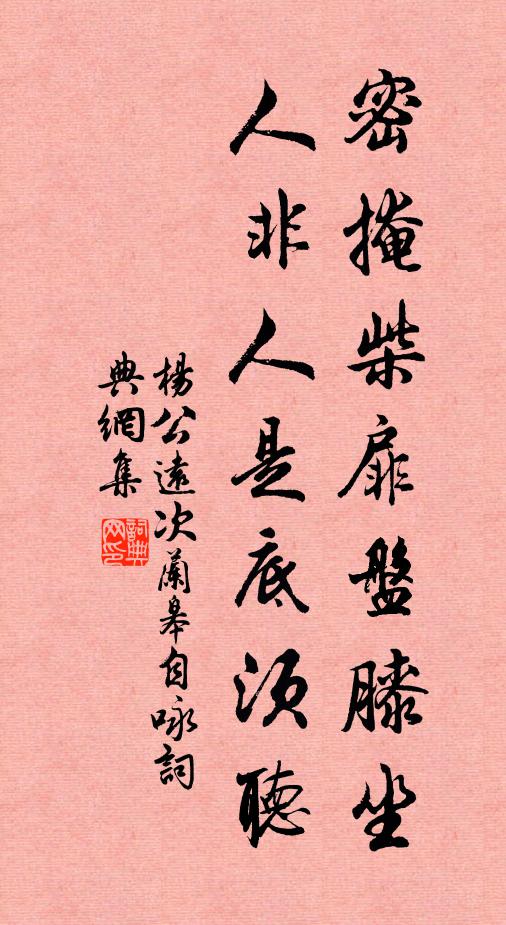 密掩柴扉盤膝坐
人非人是底須聽
楊公遠次蘭皋自咏詞
典網集
詞典网印